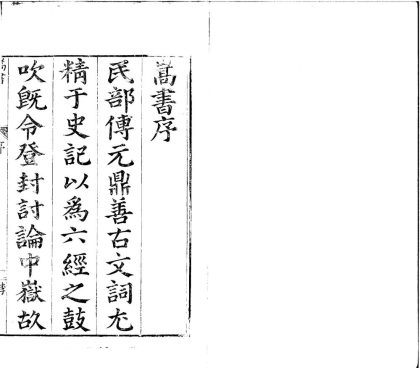 嵩書序
民部傅元鼎善古文詞尤
精于史記以爲六經之鼓
吹既令登封討論中嶽故